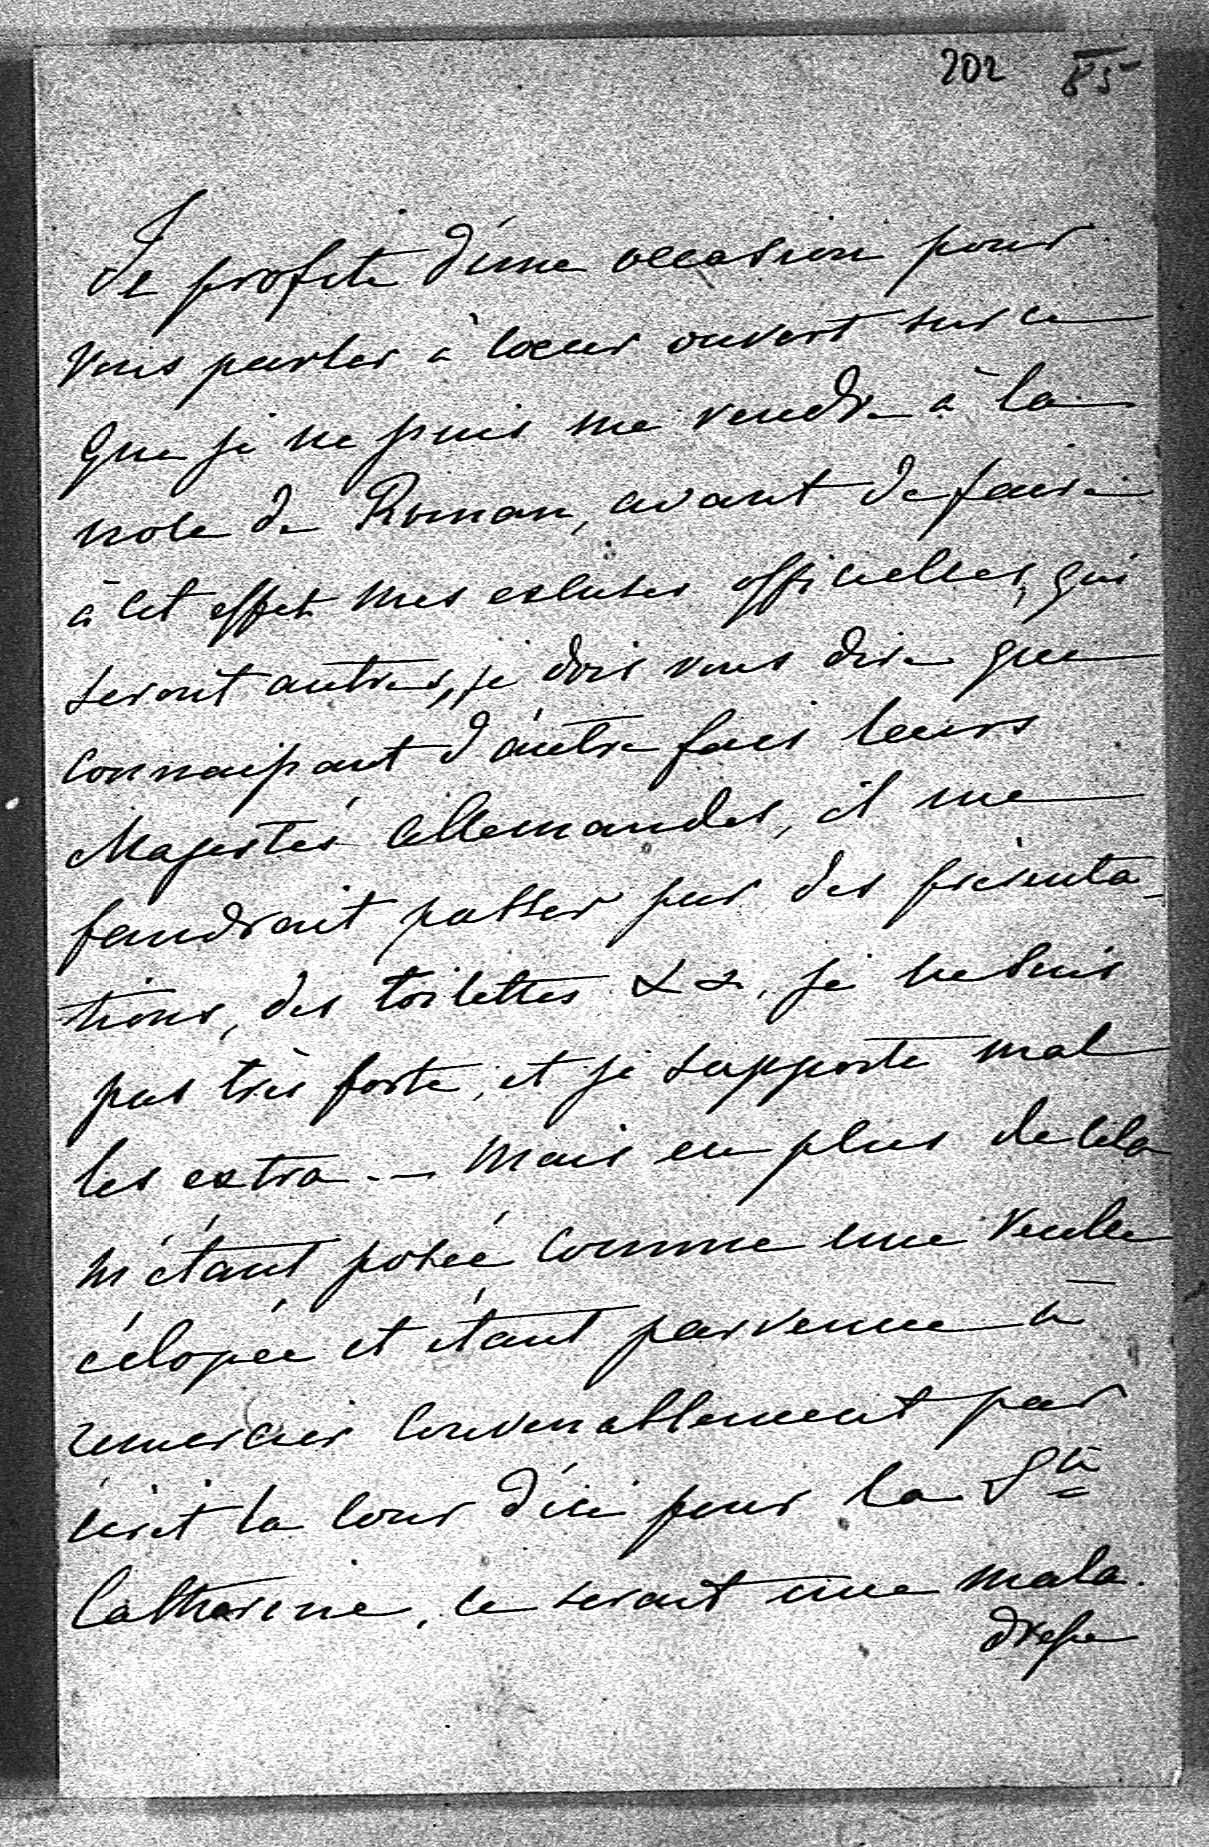 202 85
Je profite d'une occasion pour
vous parler à coeur ouvert sur ce
que je ne puis me rendre à la
noce de Roman, avant de faire
à cet effet mes excuses officielles, qui
seront autres, je dois vous dire que
connaissant d'autre fois leurs
Majestés Allemandes, il me
faudrait passer par des présenta-
tions, des toilettes & &, je ne suis
pas très forte, et je supporte mal
les extra. — Mais en plus de cela
m'étant posée comme une veuve
éclopée et étant parvenue à
remercier convenablement par
écrit la cour d'ici pour la Ste
Catherine, ce serait une mala-
dresse